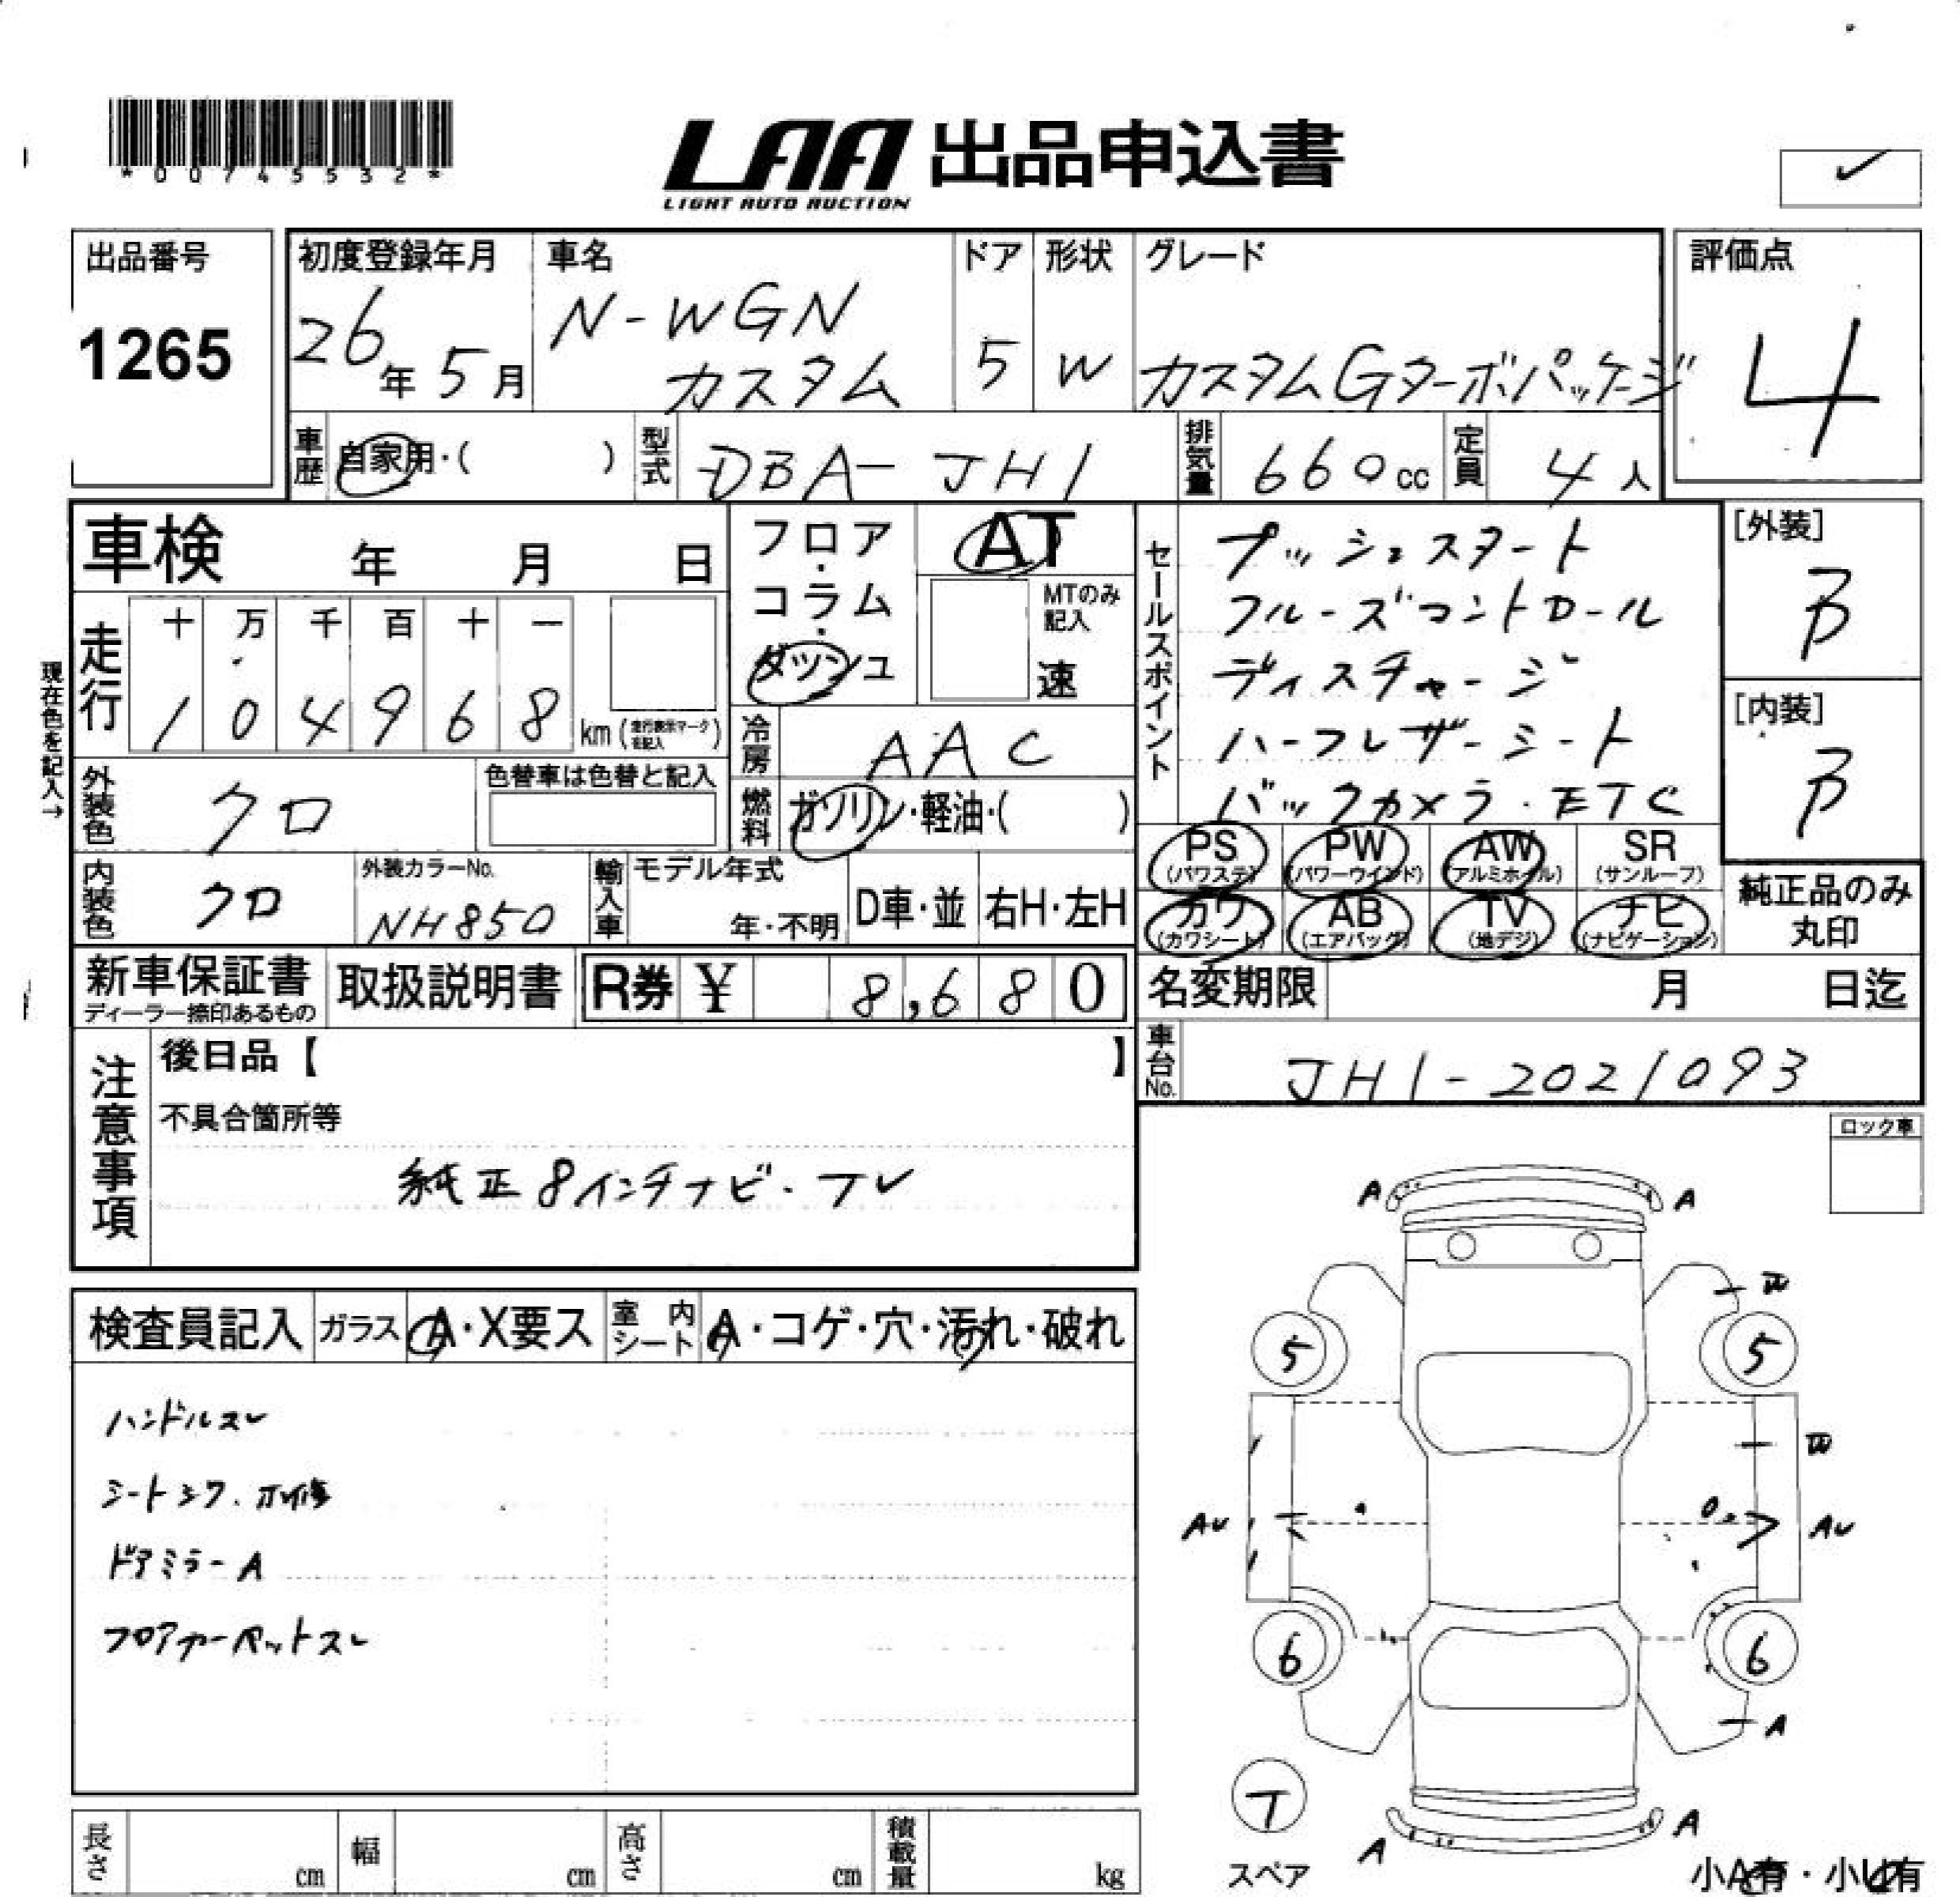 *00745532*
LAA 出品申込書
LIGHT AUTO AUCTION
出品番号
1265
初度登録年月
26年5月
車名
N-WGN
カスタム
ドア
5
形状
W
グレード
カスタムGターボパッケージ
評価点
4
車歴
自家用・( )
型式
DBA-JH1
排気量
660cc
定員
4人
車検 年 月 日
走行
十 万 千 百 十 一
1 0 4 9 6 8 km (走行表示マークを記入)
現在色を記入→
外装色
クロ
色替車は色替と記入
内装色
クロ
外装カラーNo.
NH850
フロア・コラム・ダッシュ
AT
MTのみ記入
速
冷房
AAC
燃料
ガソリン・軽油・( )
輸入車
モデル年式
年・不明
D車・並
右H・左H
セールスポイント
プッシュスタート
クルーズコントロール
ディスチャージ
ハーフレザーシート
バックカメラ・ETC
[外装]
B
[内装]
B
PS (パワステ)
PW (パワーウインド)
AW (アルミホイル)
SR (サンルーフ)
カワ (カワシート)
AB (エアバッグ)
TV (地デジ)
ナビ (ナビゲーション)
純正品のみ
丸印
新車保証書
ディーラー捺印あるもの
取扱説明書
R券 ¥ 8,680
名変期限 月 日迄
車台No.
JH1-2021093
注意事項
後日品【 】
不具合箇所等
純正8インチナビ・TV
ロック車
検査員記入
ガラス
A・X要ス
室内シート
A・コゲ・穴・汚れ・破れ
ハンドルスレ
シートシワ、
ドアミラーA
フロアカーペットスレ
A A
W
5 5
W
AU AU
6 6
A
T
スペア
A A
小A有・小U有
長さ cm
幅 cm
高さ cm
積載量 kg